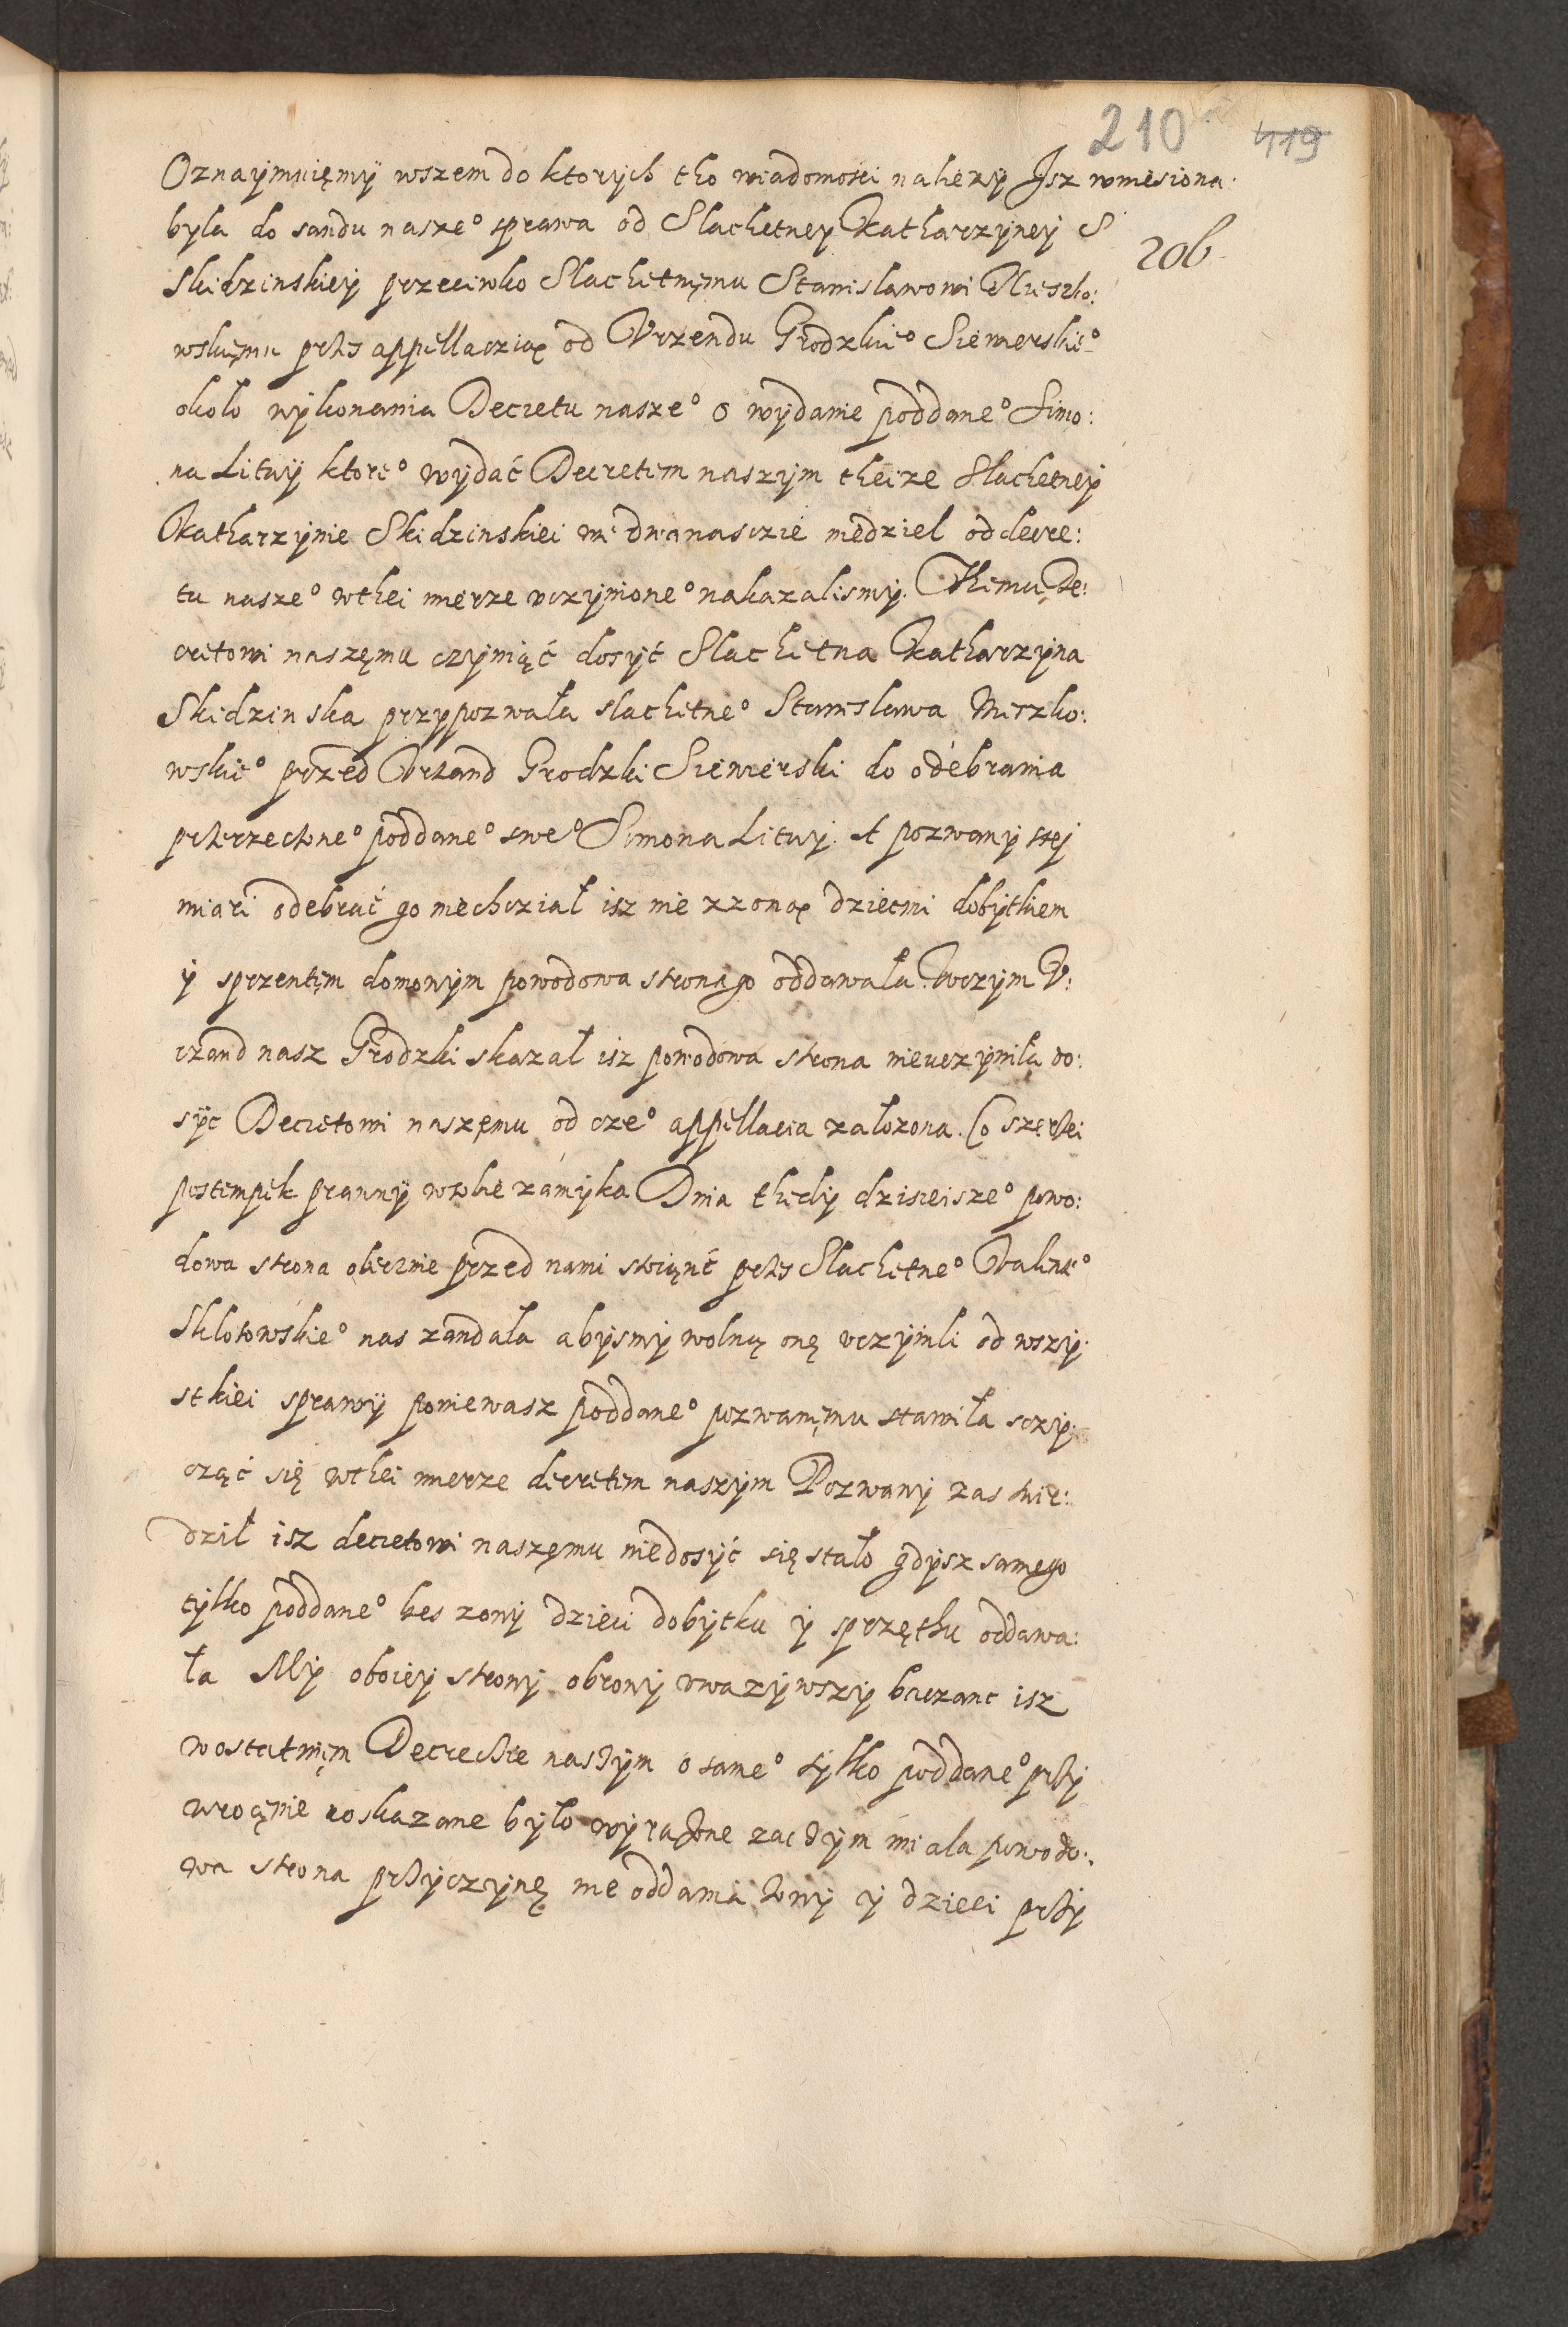 210 419
Oznaymuięmÿ wszem do ktorych tho wiadomości nalezÿ Jsz wniesiona
206
byla do sandu nasze° sprawa od Slachetney Katharzyney S
Skidzinskiey przeciwko Slachetnęmu Stanislawowi Mieszko:
wskięmu przes appellacziąe od Vrzendu Grodzkie° Siewierskie°
około wykonania Decretu nasze° o wydanie poddane° Simo:
na Litwÿ ktore° wydać Decretem naszym theize Slachetneÿ
Katharzynie Skidzinskiei we dwanasczie niedziel od decre:
tu nasze° wthei mierze vczynione° nakazalismÿ. Themu De:
cretowi naszęmu czyniąć dosyć Slachetna Katharzyna
Skidzinska przypozwała slachetne° Stanislawa Mieszko:
wskie° przed Vrzand Grodzki Siewierski do odebrania
przerzeczone° poddane° swe° Simona Litwÿ. A pozwanÿ stej
miari odebrać go niechcział isz nie zzonąe dziecmi dobytkiem
ÿ sprzentęm domowym powodowa strona go oddawała. Wczym V:
rzand nasz Grodzki skazał isz powodowa strona nieuczyniła do:
syc Decretowi naszęmu od cze° appellacia załozona. Co szerzei
postempek prawnÿ wsobie zamyka Dnia thedÿ dzisieisze° powo:
dowa strona obecznie przed nami stoiąnć przes Slachetne° Walente°
Sklotowskie° nas zandała abysmÿ wolną onę vczynili od wszÿ:
stkiei sprawÿ poniewasz poddane° pozwanęmu stawiła sczÿ:
cząć się wthei mierze decretem naszym Pozwanÿ zas twier:
dził isz decretowi naszęmu niedosyć się stało gdysz samego
tylko poddane° bes zonÿ dzieci dobytku ÿ sprzęthu oddawa:
ła Mÿ oboieÿ stronÿ obronÿ vwazywszÿ baczanc isz
wostatnięm Decrecie naszym o same° tylko poddane° przy
wrocęnie roskazane było wyrazone zaczym miala powodo:
wa strona przyczynę nie oddania zonÿ ÿ dzieci przy